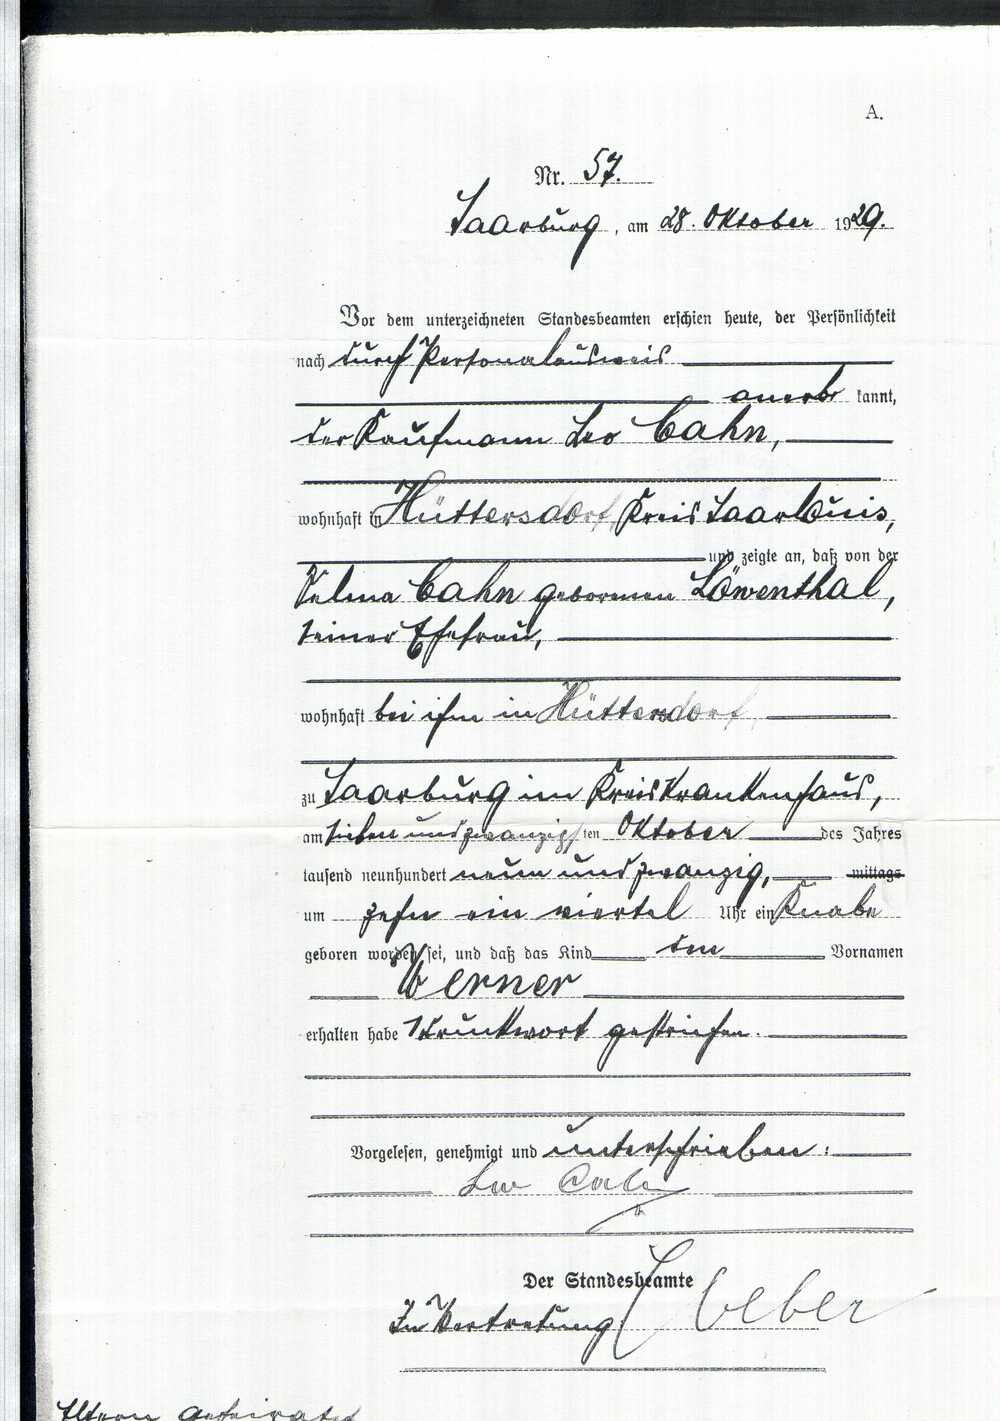 A.
Nr. 57.
Saarburg, am 28. Oktober 1929.
Vor dem unterzeichneten Standesbeamten erschien heute, der Persönlichkeit
nach durch Personalausweis
anerkannt,
der Kaufmann Leo Cahn,
wohnhaft in Hüttersdorf, Kreis Saarlouis,
und zeigte an, daß von der
Selma Cahn geborenen Löwenthal,
seiner Ehefrau,
wohnhaft bei ihm in Hüttersdorf,
zu Saarburg im Kreiskrankenhaus,
am sieben und zwanzigsten Oktober des Jahres
tausend neunhundert neun und zwanzig, mittags
um zehn ein viertel Uhr ein Knabe
geboren worden sei, und daß das Kind den Vornamen
Werner
erhalten habe 1 Druckwort gestrichen.
Vorgelesen, genehmigt und unterschrieben:
Leo Cahn
Der Standesbeamte
In Vertretung Weber
Eltern geheiratet